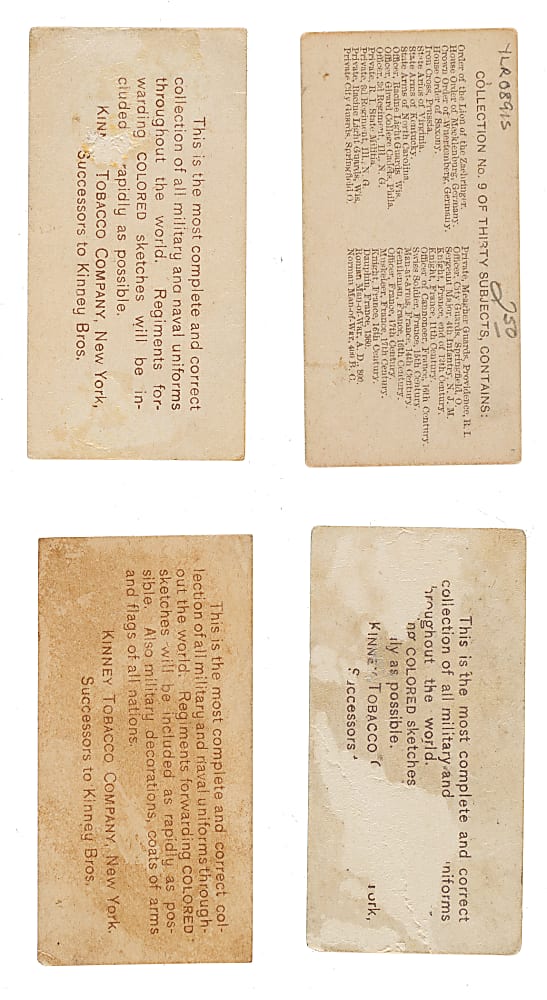 This is the most complete and correct
collection of all military and naval uniforms
throughout the world. Regiments for-
warding COLORED sketches will be in-
cluded rapidly as possible.
KINN TOBACCO COMPANY, New York,
Successors to Kinney Bros.
YLR0891S
250
COLLECTION No. 9 OF THIRTY SUBJECTS, CONTAINS:
Order of the Lion of the Zaehringer.
House Order of Mecklenburg, Germany.
Crown Order of Wuertemberg, Germany.
House Order of Saxony.
Iron Cross, Prussia.
State Arms of Virginia.
State Arms of Kentucky.
State Arms of North Carolina.
Officer, Racine Light Guards, Wis.
Officer, Girard College Cadets, Phila.
Officer, 2d Regiment, Ill. N. G.
Private, R. I. State Militia.
Private, 2d Regiment, Ill. N. G.
Private, Racine Light Guards, Wis.
Private City Guards, Springfield O.
Private, Meagher Guards, Providence, R. I.
Officer, City Guards, Springfield, O.
Sergeant Major, 4th Infantry, N. J. M.
Knight, France, end of 12th Century.
Knight, France, 11th Century.
Officer of Cannoneers, France, 16th Century.
Swiss Soldier, France, 15th Century.
Man-at-Arms, France, 14th Century.
Gentleman, France, 16th Century.
Officer, France, 17th Century.
Musketeer, France, 17th Century.
Knight, France, 16th Century.
Dauphin, France, 1360.
Roman Man-of-War, A. D. 800.
Norman Man-of-War, 400 B. C.
This is the most complete and correct col-
lection of all military and naval uniforms through-
out the world. Regiments forwarding COLORED
sketches will be included as rapidly as pos-
sible. Also military decorations, coats of arms
and flags of all nations.
KINNEY TOBACCO COMPANY, New York.
Successors to Kinney Bros.
This is the most complete and correct
collection of all military and niforms
hroughout the world.
ng COLORED sketches
ly as possible.
KINNEY TOBACCO C ork,
Successors